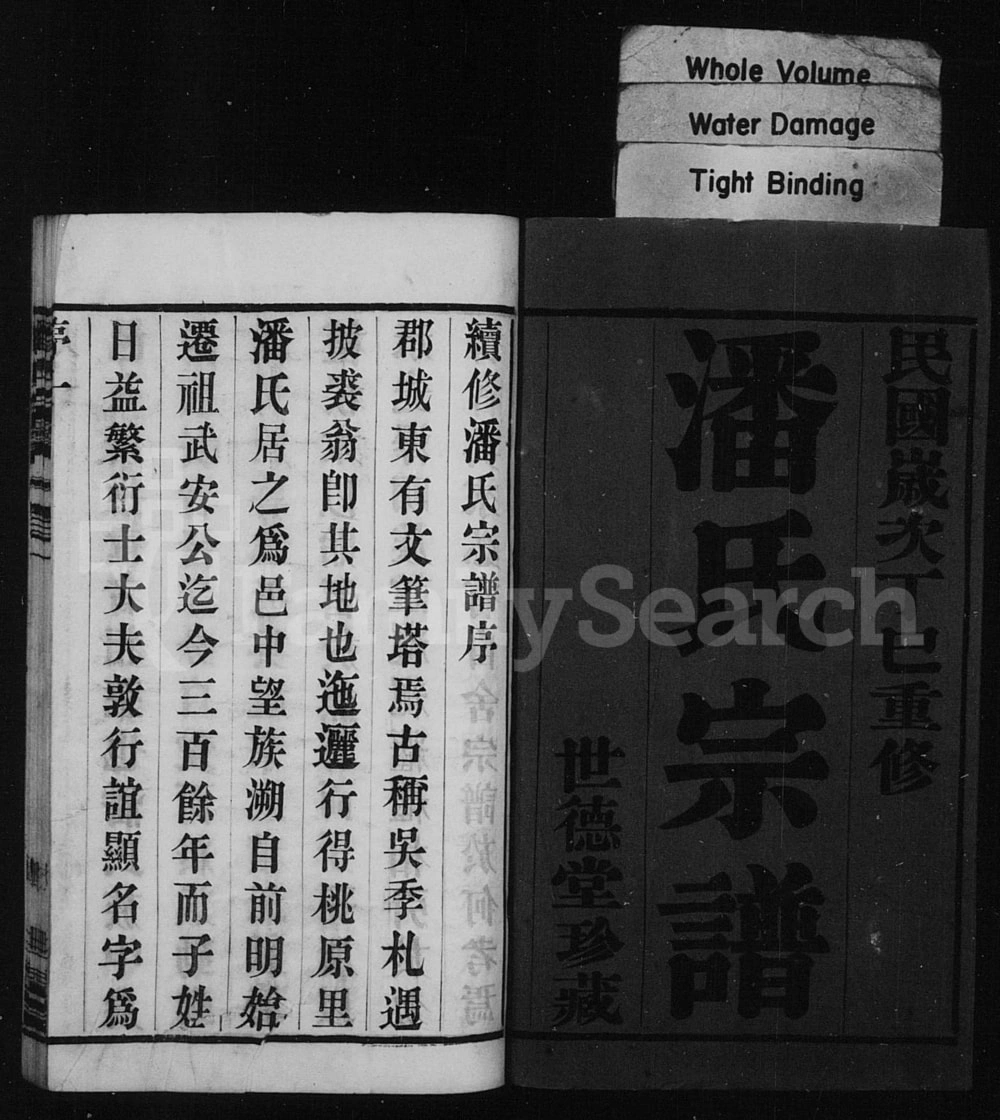 Whole Volume
Water Damage
Tight Binding
民國歲次丁巳重修
潘氏宗譜
世德堂珍藏
續修潘氏宗譜序
郡城東有文筆塔焉古稱吳季札遇
披裘翁卽其地也迤邐行得桃原里
潘氏居之爲邑中望族溯自前明始
遷祖武安公迄今三百餘年而子姓
日益繁衍士大夫敦行誼顯名字爲
序一
FamilySearch